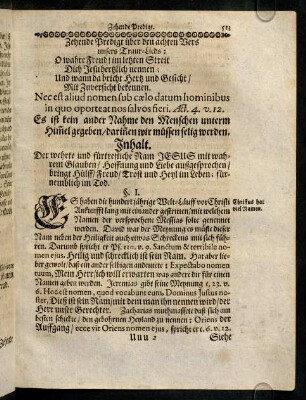 Zehende Predigt. 523
Zehende Predigt über den achten Vers
unsers Traur-Lieds:
O wahre Freud! im letzten Streit
Dich Jesu hertzlich nennen/
Und wann da bricht Hertz und Gesicht/
Mit Zuversicht bekennen.
Nec est aliud nomen sub cælo datum hominibus
in quo oporteat nos salvos fieri. Act. 4. v. 12.
Es ist kein ander Nahme den Menschen unterm
Himmel gegeben/ darinnen wir müssen selig werden.
Inhalt.
Der wehrte und fürtreffliche Nam JESUS mit wah-
rem Glauben/ Hoffnung und Liebe außgesprochen/
bringt Hülff/ Freud/ Trost und Heyl im Leben: für-
nemblich im Tod.
§. I.
ES haben die hundertjährige Welt-Läuff vor Christi
Ankunfft lang mit einander gestritten/ mit welchem
Namen der versprochene Messias solte genennet
werden. David war der Meynung es müste dieser
Nam neben der Heiligkeit auch etwas Schreckens mit sich füh-
ren. Darumb spricht er Ps. 110. v. 9. Sanctum & terribile no-
men ejus, Heilig und schrecklich ist sein Nam. Hat aber lie-
ber gewolt/ daß ein ander selbigen andeutete: Expectabo nomen
tuum, Mein Herr/ ich will erwarten was ander dir für einen
Namen geben werden. Jeremias gibt seine Meynung c. 23. v.
6. Hoc est nomen, quod vocabunt eum, Dominus Justus no-
ster, Diß ist sein Nam/ mit dem man ihn nennen wird/ der
Herr unser Gerechter. Zacharias muthmassete daß sich am
besten schickte/ den gebohrnen Heyland zu nennen: Oriens der
Auffgang/ ecce vir Oriens nomen ejus, spricht er c. 6. v. 12.
Christus hat
viel Namen.
Uuu 2 Siehe